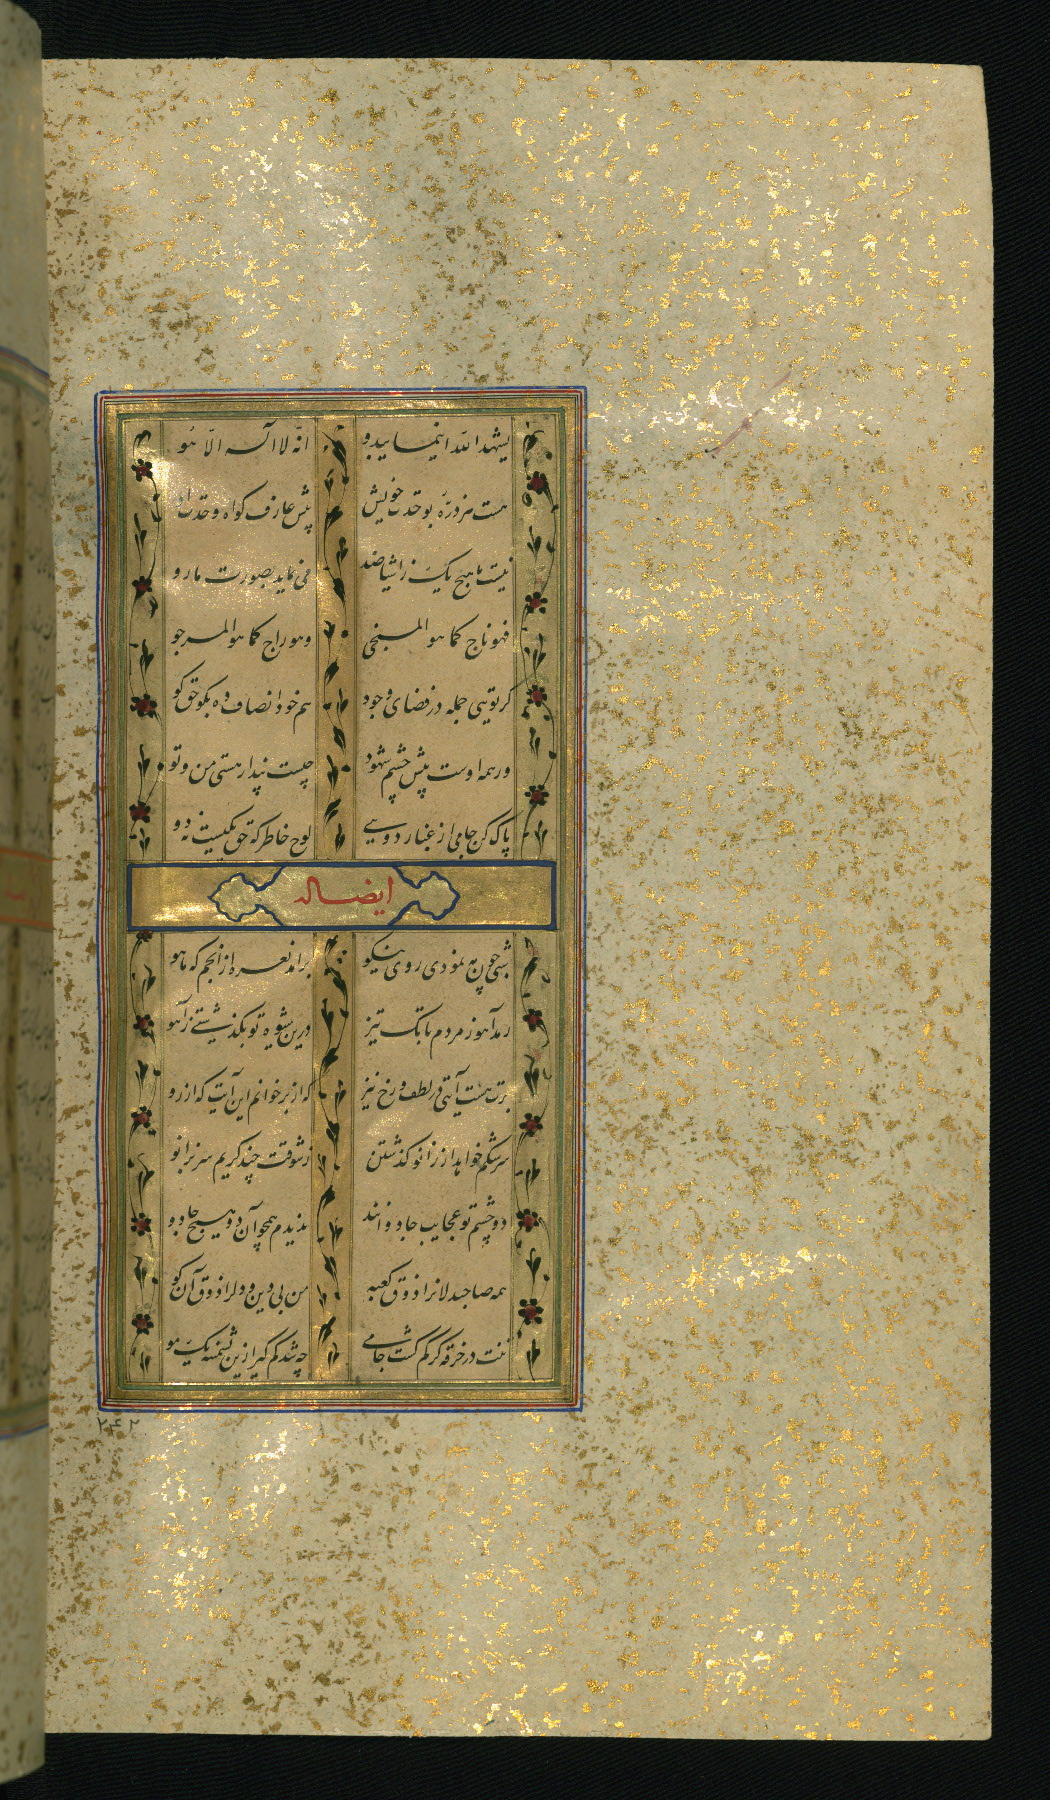 یشهد الله اینما یبدو
انه لا اله الا هو
هست هر ذره بوحدت خویش
پیش عارف کواه وحدت او
نیست ما هیچ یک ز اشیا ضد
می نماید بصورت ما رو
فهو ناج کما هو المنجی
وهو راج کما هو المرجو
کر تویی جمله در فضای وجود
هم خود انصاف ده بکو حق کو
ور همه اوست پیش چشم شهود
چیست پندار هستی من و تو
پاک کن جامی از غبار دویی
لوح خاطر که حق یکیست نه دو
ایضا له
شبی چون مه نمودی روی نیکو
برآمد نعره از انجم که ماهو
رمد آهو ز مردم با تک تیز
درین شیوه تو بکذشتی ز آهو
برت هست آیتی در لطف و رخ نیز
که از بر خوانم این آیت که از رو
سرشکم خواهد از زانو کذشتن
ز شوقت چند کریم سر بزانو
دو چشم تو عجایب جادوانند
ندیدم همچو آن دو هیچ جادو
همه صاحبدلانرا ذوق کعبه
من بی دین و دل را ذوق آن کو
تنت در خرقه کر کم کشت جامی
چه شد کم کیر ازین پشمینه یک مو
۲۴۲